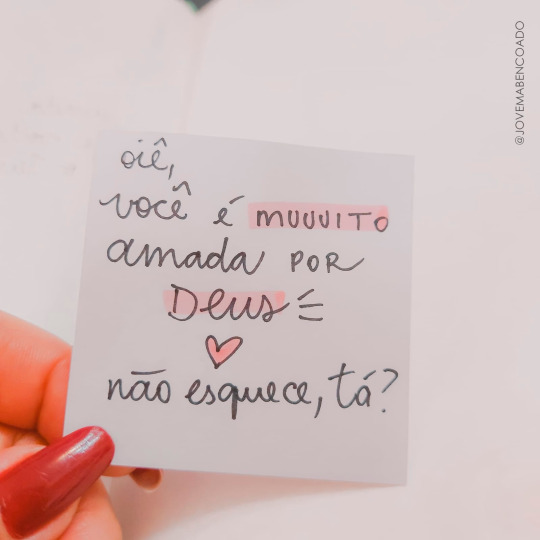 oiê,
você é muuuito
amada por
Deus
não esquece, tá?
@JOVEMABENCOADO